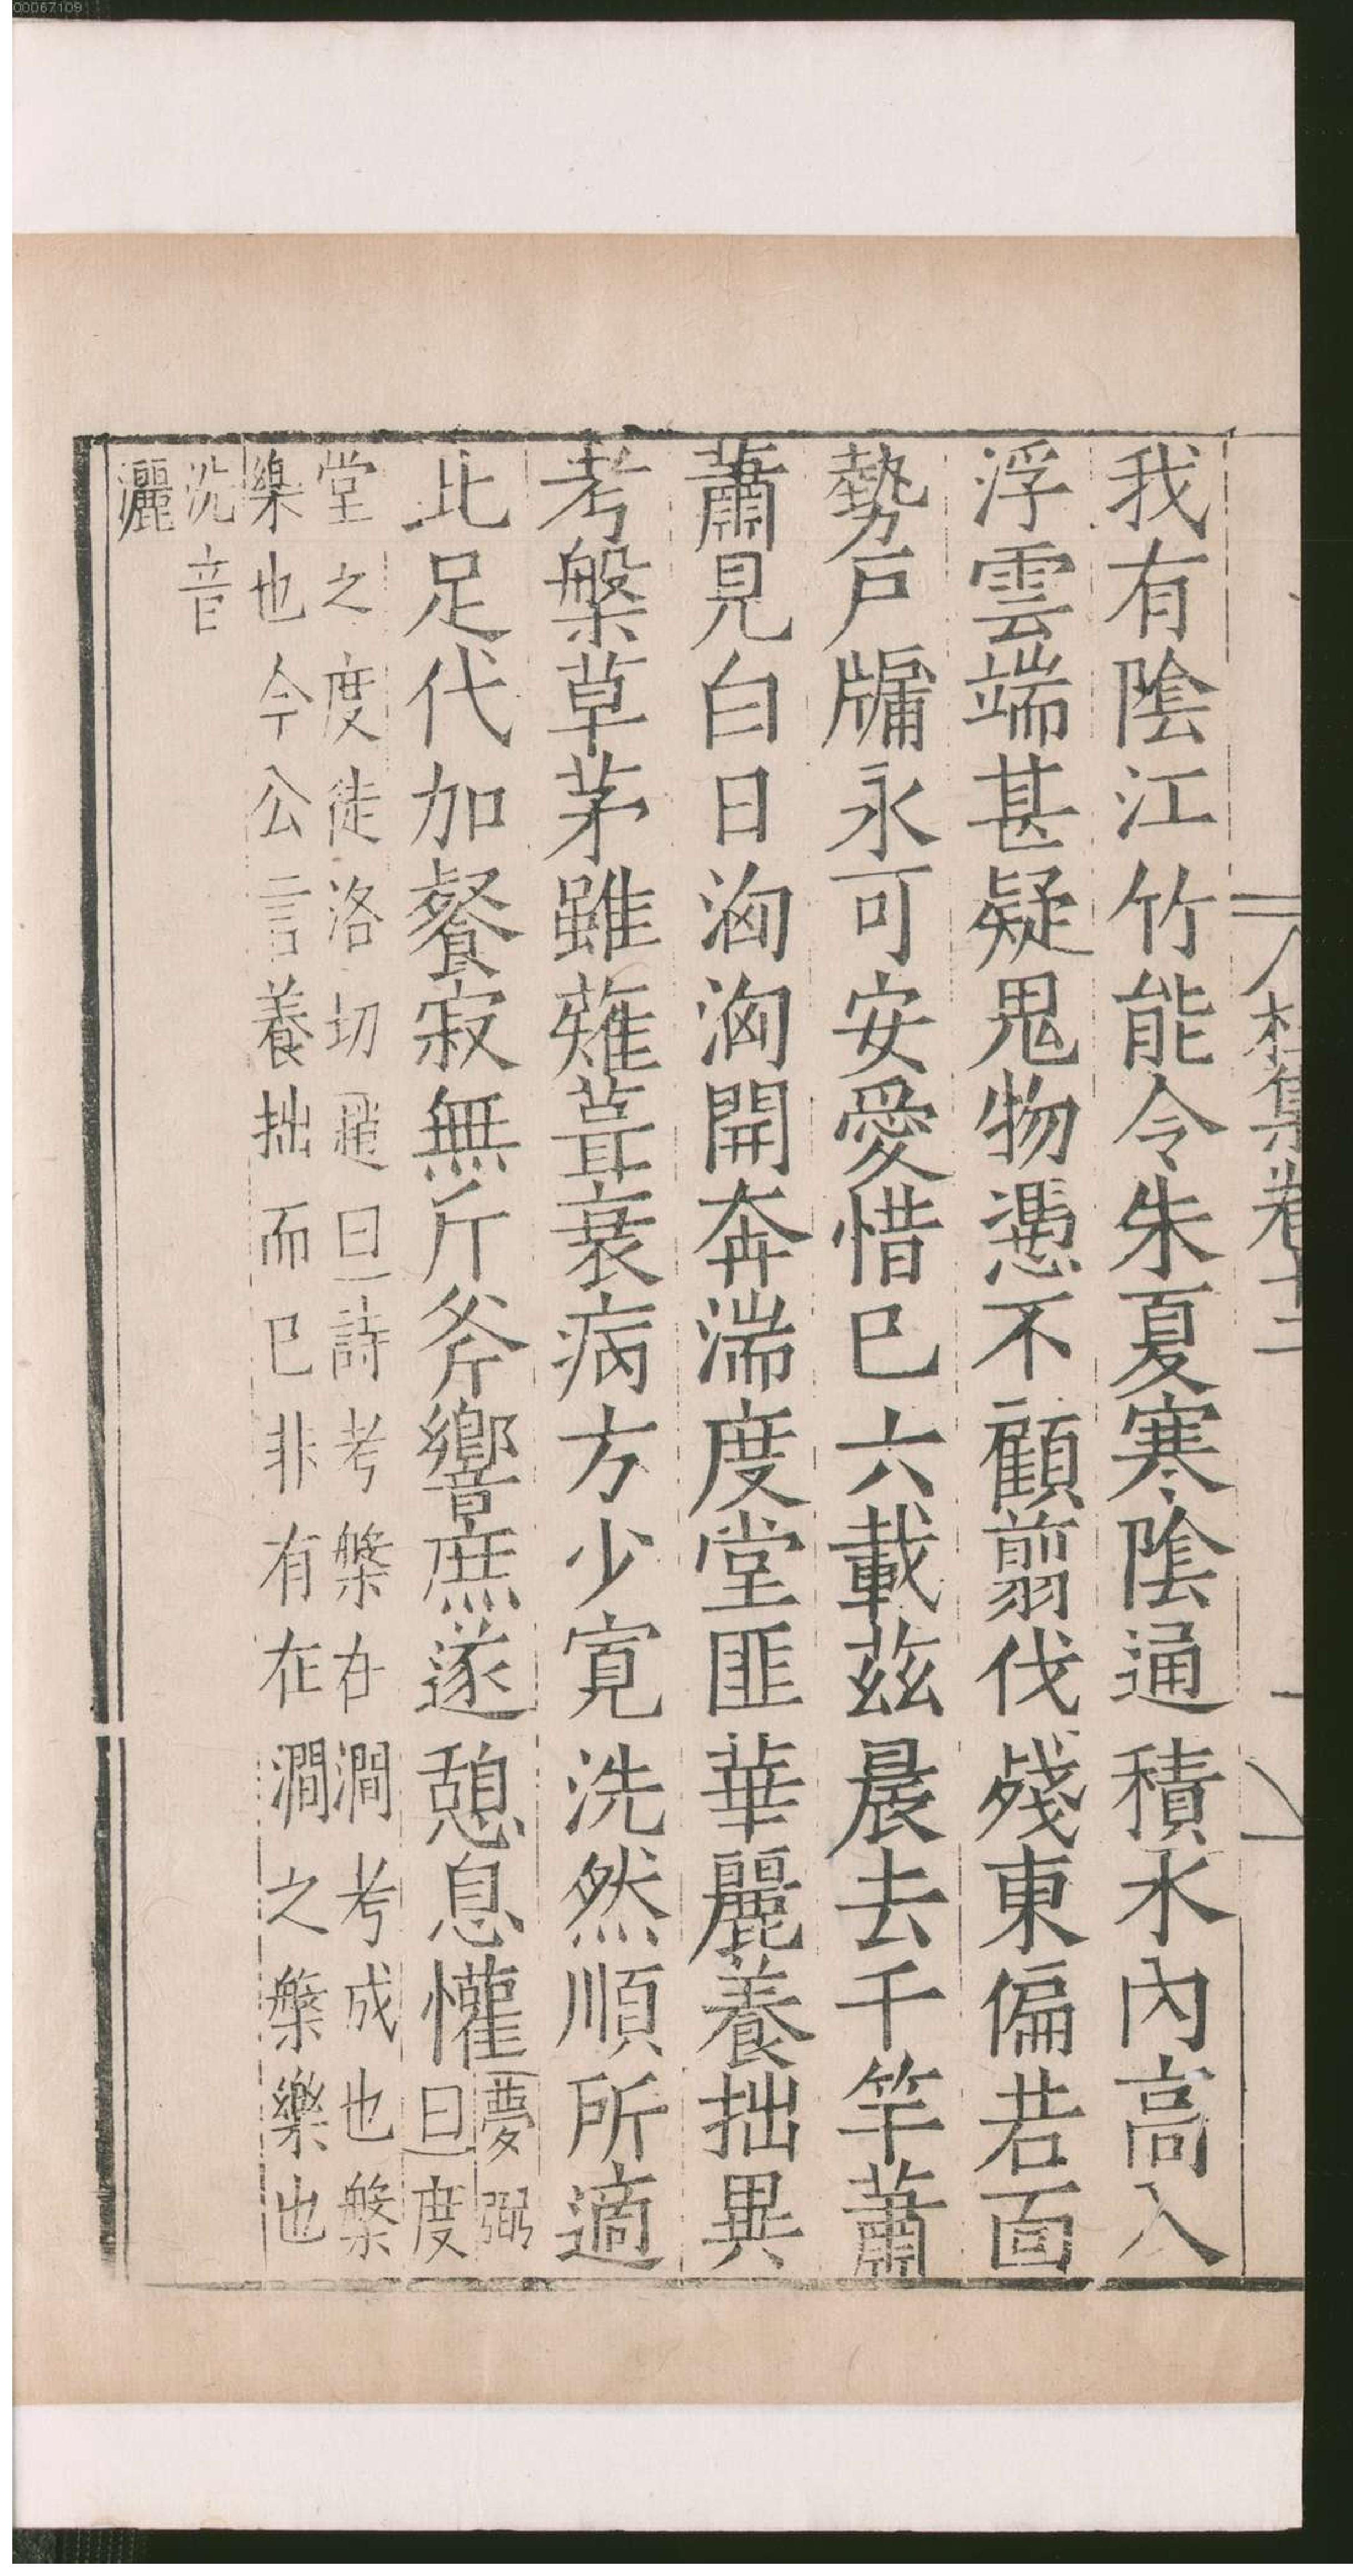 杜集卷十二
我有陰江竹能令朱夏寒陰通積水內高入
浮雲端甚疑鬼物憑不顧翦伐殘東偏若面
勢戶牖永可安愛惜已六載茲晨去千竿蕭
蕭見白日洶洶開奔湍度堂匪華麗養拙異
考槃草茅雖薙葺衰病方少寬洗然順所適
此足代加餐寂無斤斧響庶遂憩息懽
夢弼
曰度
堂之度徒洛切趙曰詩考槃在澗考成也槃
樂也今公言養拙而已非有在澗之槃樂也
洗音
灑
00067109